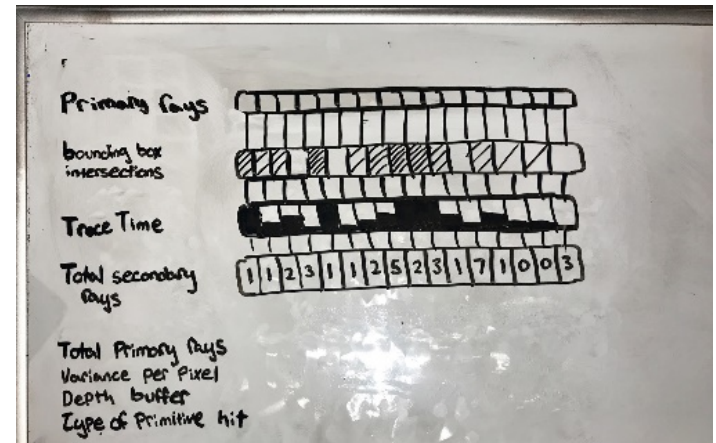 Primary rays
bounding box
intersections
Trace Time
Total secondary
rays
1 1 2 3 1 1 2 5 2 3 1 7 1 0 0 3
Total Primary rays
Variance per Pixel
Depth buffer
Type of Primitive hit